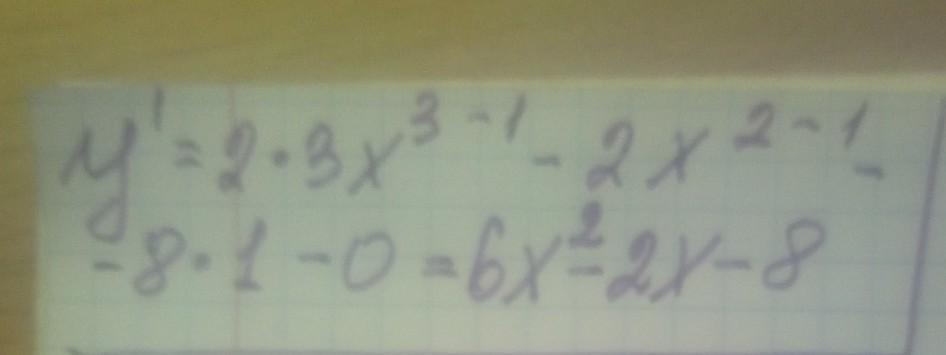 y' = 2·3x³⁻¹ - 2x²⁻¹ -
- 8·1 - 0 = 6x² - 2x - 8